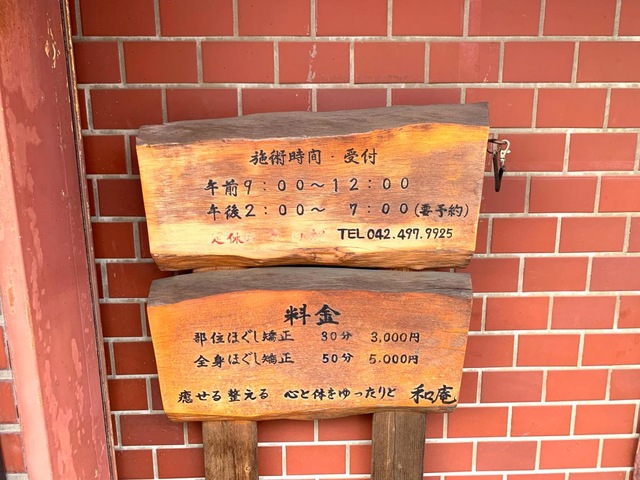 施術時間・受付
午前9:00〜12:00
午後2:00〜 7:00(要予約)
定休 TEL 042.497.9925
料金
部位ほぐし矯正 30分 3,000円
全身ほぐし矯正 50分 5.000円
癒せる 整える 心と体をゆったりと 和庵